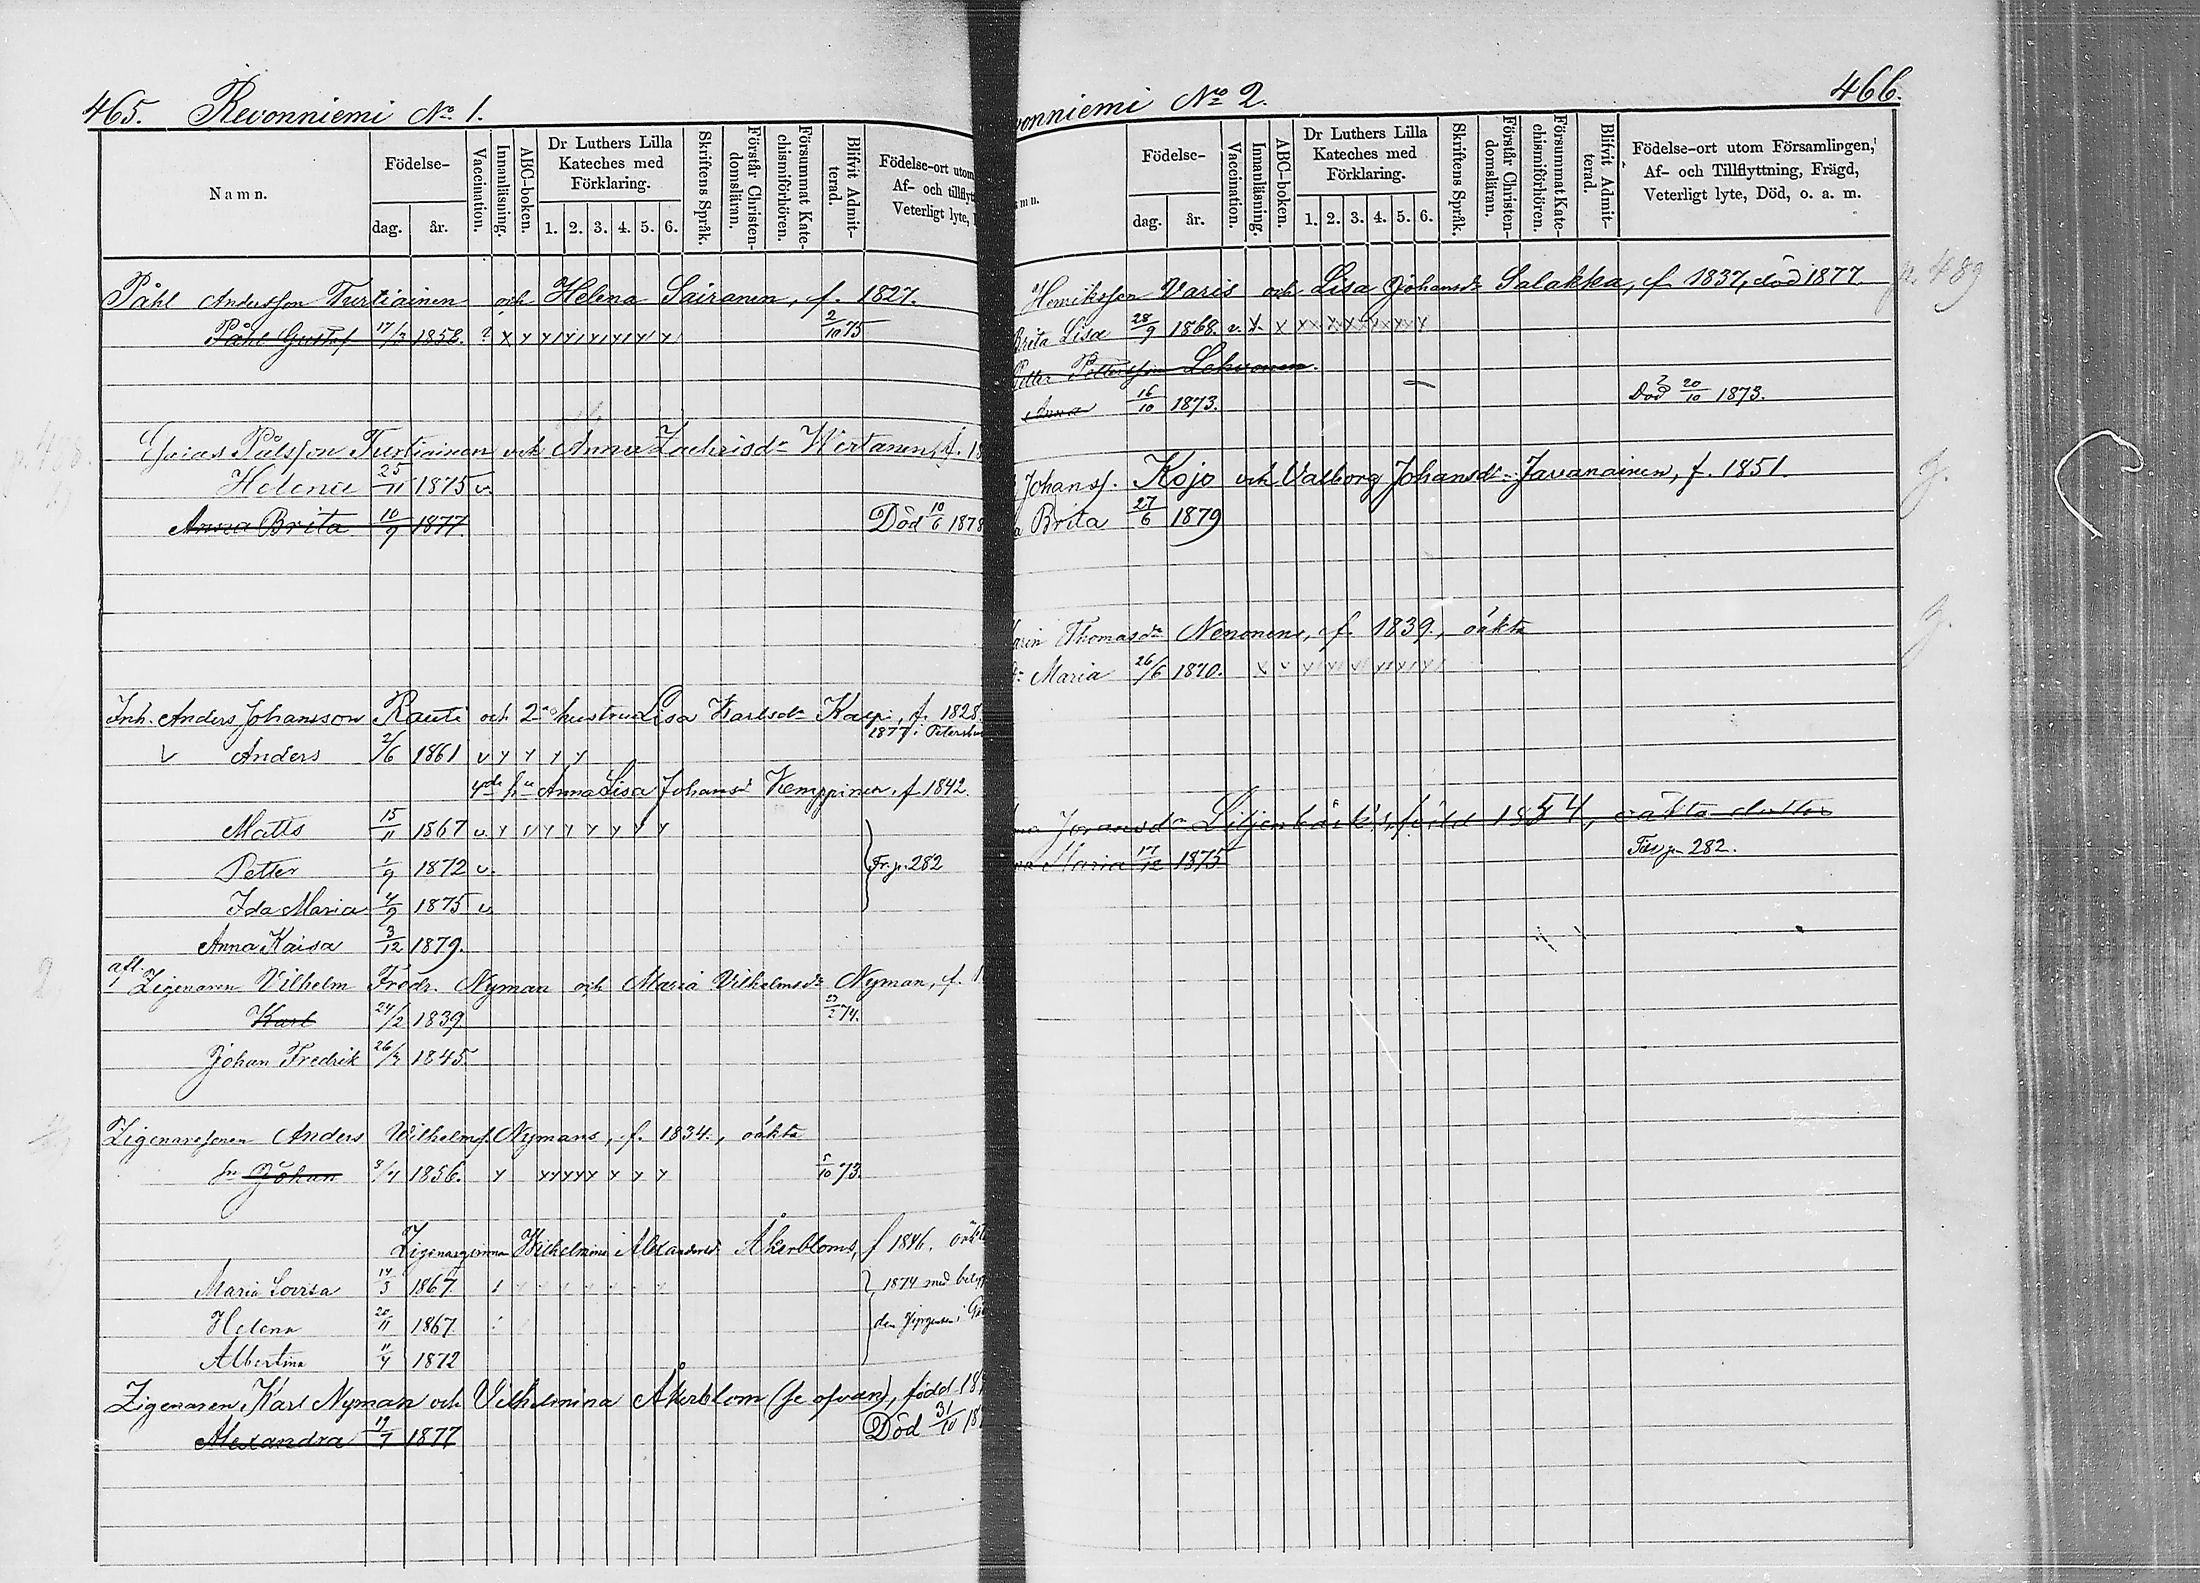 465. Revonniemi No 1.
Namn.
Födelse-
dag. år.
Vaccination.
Innanläsning.
ABC-boken.
Dr Luthers Lilla
Kateches med
Förklaring.
1. 2. 3. 4. 5. 6.
Skriftens Språk.
Förstår Christen-
domsläran.
Försummat Kate-
chismiförhören.
Blifvit Admit-
terad.
Födelse-ort utom
Af- och tillflyt
Veterligt lyte,
Påhl Andersson Turtiainen och Helena Sairanen, f. 1827.
Påhl Gustaf 17/3 1858. x y y y y y y y 2/10 75
Påls son Turtiainen och Anna Zachrisdr Wirtanen, f. 18
Helena 25/11 1875 v.
Anna Brita 10/9 1877. Död 10/6 1878
Inh. Anders Johansson Rauti och 2dra hustrun Lisa Karlsdr Karpi, f. 1828.
1877 i Petersbu
v Anders 2/6 1861 v y y y y
4de hu Anna Lisa Johansd Kemppinen, f. 1842.
Matts 15/11 1867 v. y v y y y y y
Petter 1/9 1872 v. Fr. p. 282
Ida Maria 4/9 1875 v.
Anna Kaisa 3/12 1879.
afl.
Zigenaren Vilhelm Fredr. Nyman och Maria Vilhelmsdr Nyman, f. 1
Karl 24/2 1839 23/2 74.
Johan Fredrik 26/7 1845.
Zigenaresonen Anders Wilhelmss. Nymans, f. 1834., oäkta
sn Johan 8/4 1856. y y y y y y y y y 5/10 73.
Zigenarqvinna Wilhelmina Alexandersd. Åkerbloms, f 1846. oäkta
Maria Lovisa 14/3 1867 1874 med betyg
Helena 20/11 1867
Albertina 11/4 1872
Zigenaren Karl Nyman och Vilhelmina Åkerblom (se ofvan), född 18
Alexandra 19/7 1877 Död 31/10 18
onniemi No 2. 466.
mn.
Födelse-
dag. år.
Vaccination.
Innanläsning.
ABC-boken.
Dr Luthers Lilla
Kateches med
Förklaring.
1. 2. 3. 4. 5. 6.
Skriftens Språk.
Förstår Christen-
domsläran.
Försummat Kate-
chismiförhören.
Blifvit Admit-
terad.
Födelse-ort utom Församlingen,
Af- och Tillflyttning, Frägd,
Veterligt lyte, Död, o. a. m.
Henriksson Varis och Lisa Johansdr Salakka, f. 1837, död 1877. p. 489
Brita Lisa 28/9 1868. v. x x x x x x x x
Petter Pettersson Lehvonen.
Anna 16/10 1873. Död 20/10 1873.
Johanss. Kojo och Valborg Johansdr Javanainen, f. 1851.
a Brita 27/6 1879
arin Thomasdr Nenonens, f. 1839., oäkta
dr Maria 26/6 1870. x v y y y y y y
na Johansdr Liljenbäcks, född 1854, oäkta dotter
na Maria 17/12 1875 Tsv p. 282.